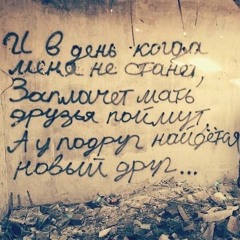 И в день когда
меня не станет,
Заплачет мать
друзья поймут,
А у подруг найдётся
новый друг...